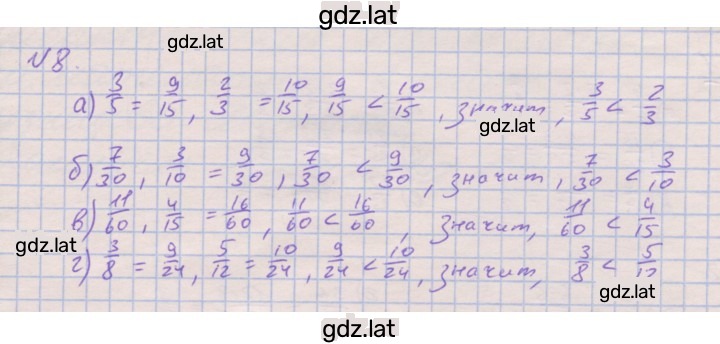 gdz.lat
№8. gdz.lat
а) 3/5 = 9/15, 2/3 = 10/15, 9/15 < 10/15, значит, 3/5 < 2/3
gdz.lat
б) 7/30, 3/10 = 9/30, 7/30 < 9/30, значит, 7/30 < 3/10
в) 11/60, 4/15 = 16/60, 11/60 < 16/60, значит, 11/60 < 4/15
gdz.lat
г) 3/8 = 9/24, 5/12 = 10/24, 9/24 < 10/24, значит, 3/8 < 5/12
gdz.lat
gdz.lat